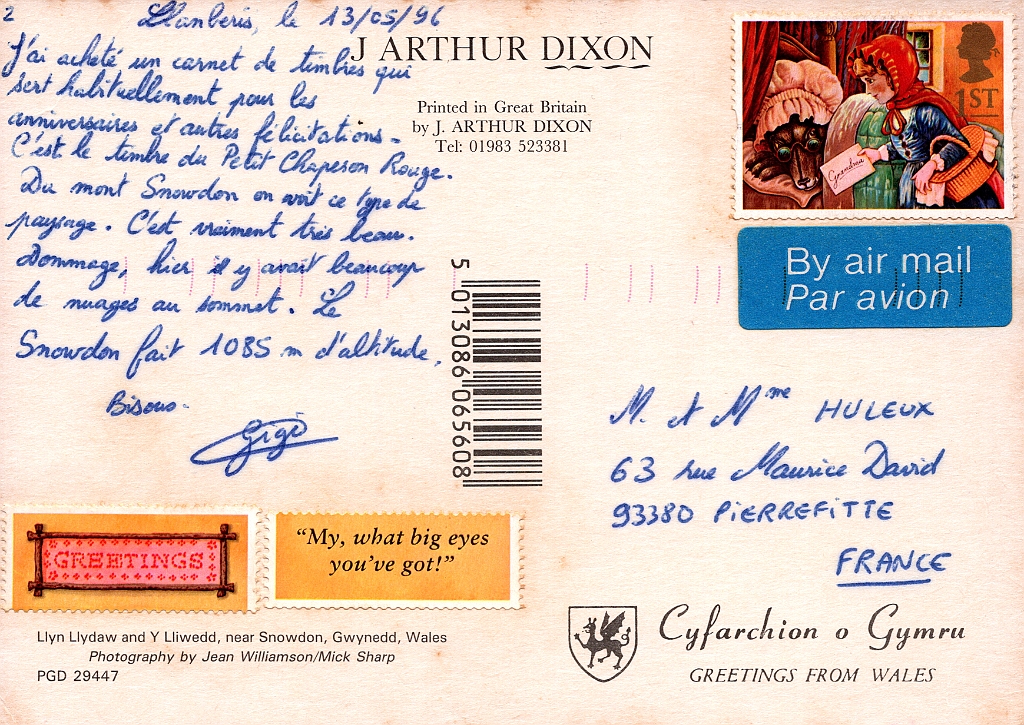 2
Llanberis, le 13/05/96
J'ai acheté un carnet de timbres qui
sert habituellement pour les
anniversaires et autres félicitations.
C'est le timbre du Petit Chaperon Rouge.
Du mont Snowdon on voit ce type de
paysage. C'est vraiment très beau.
Dommage, hier il y avait beaucoup
de nuages au sommet. Le
Snowdon fait 1085 m d'altitude.
Bisous.
Gigi
J ARTHUR DIXON
Printed in Great Britain
by J. ARTHUR DIXON
Tel: 01983 523381
1ST
Grandma
By air mail
Par avion
5 013086 065608
M. et Mme HULEUX
63 rue Maurice David
93380 PiERREFiTTE
FRANCE
GREETINGS
“My, what big eyes
you've got!”
Llyn Llydaw and Y Lliwedd, near Snowdon, Gwynedd, Wales
Photography by Jean Williamson/Mick Sharp
PGD 29447
Cyfarchion o Gymru
GREETINGS FROM WALES